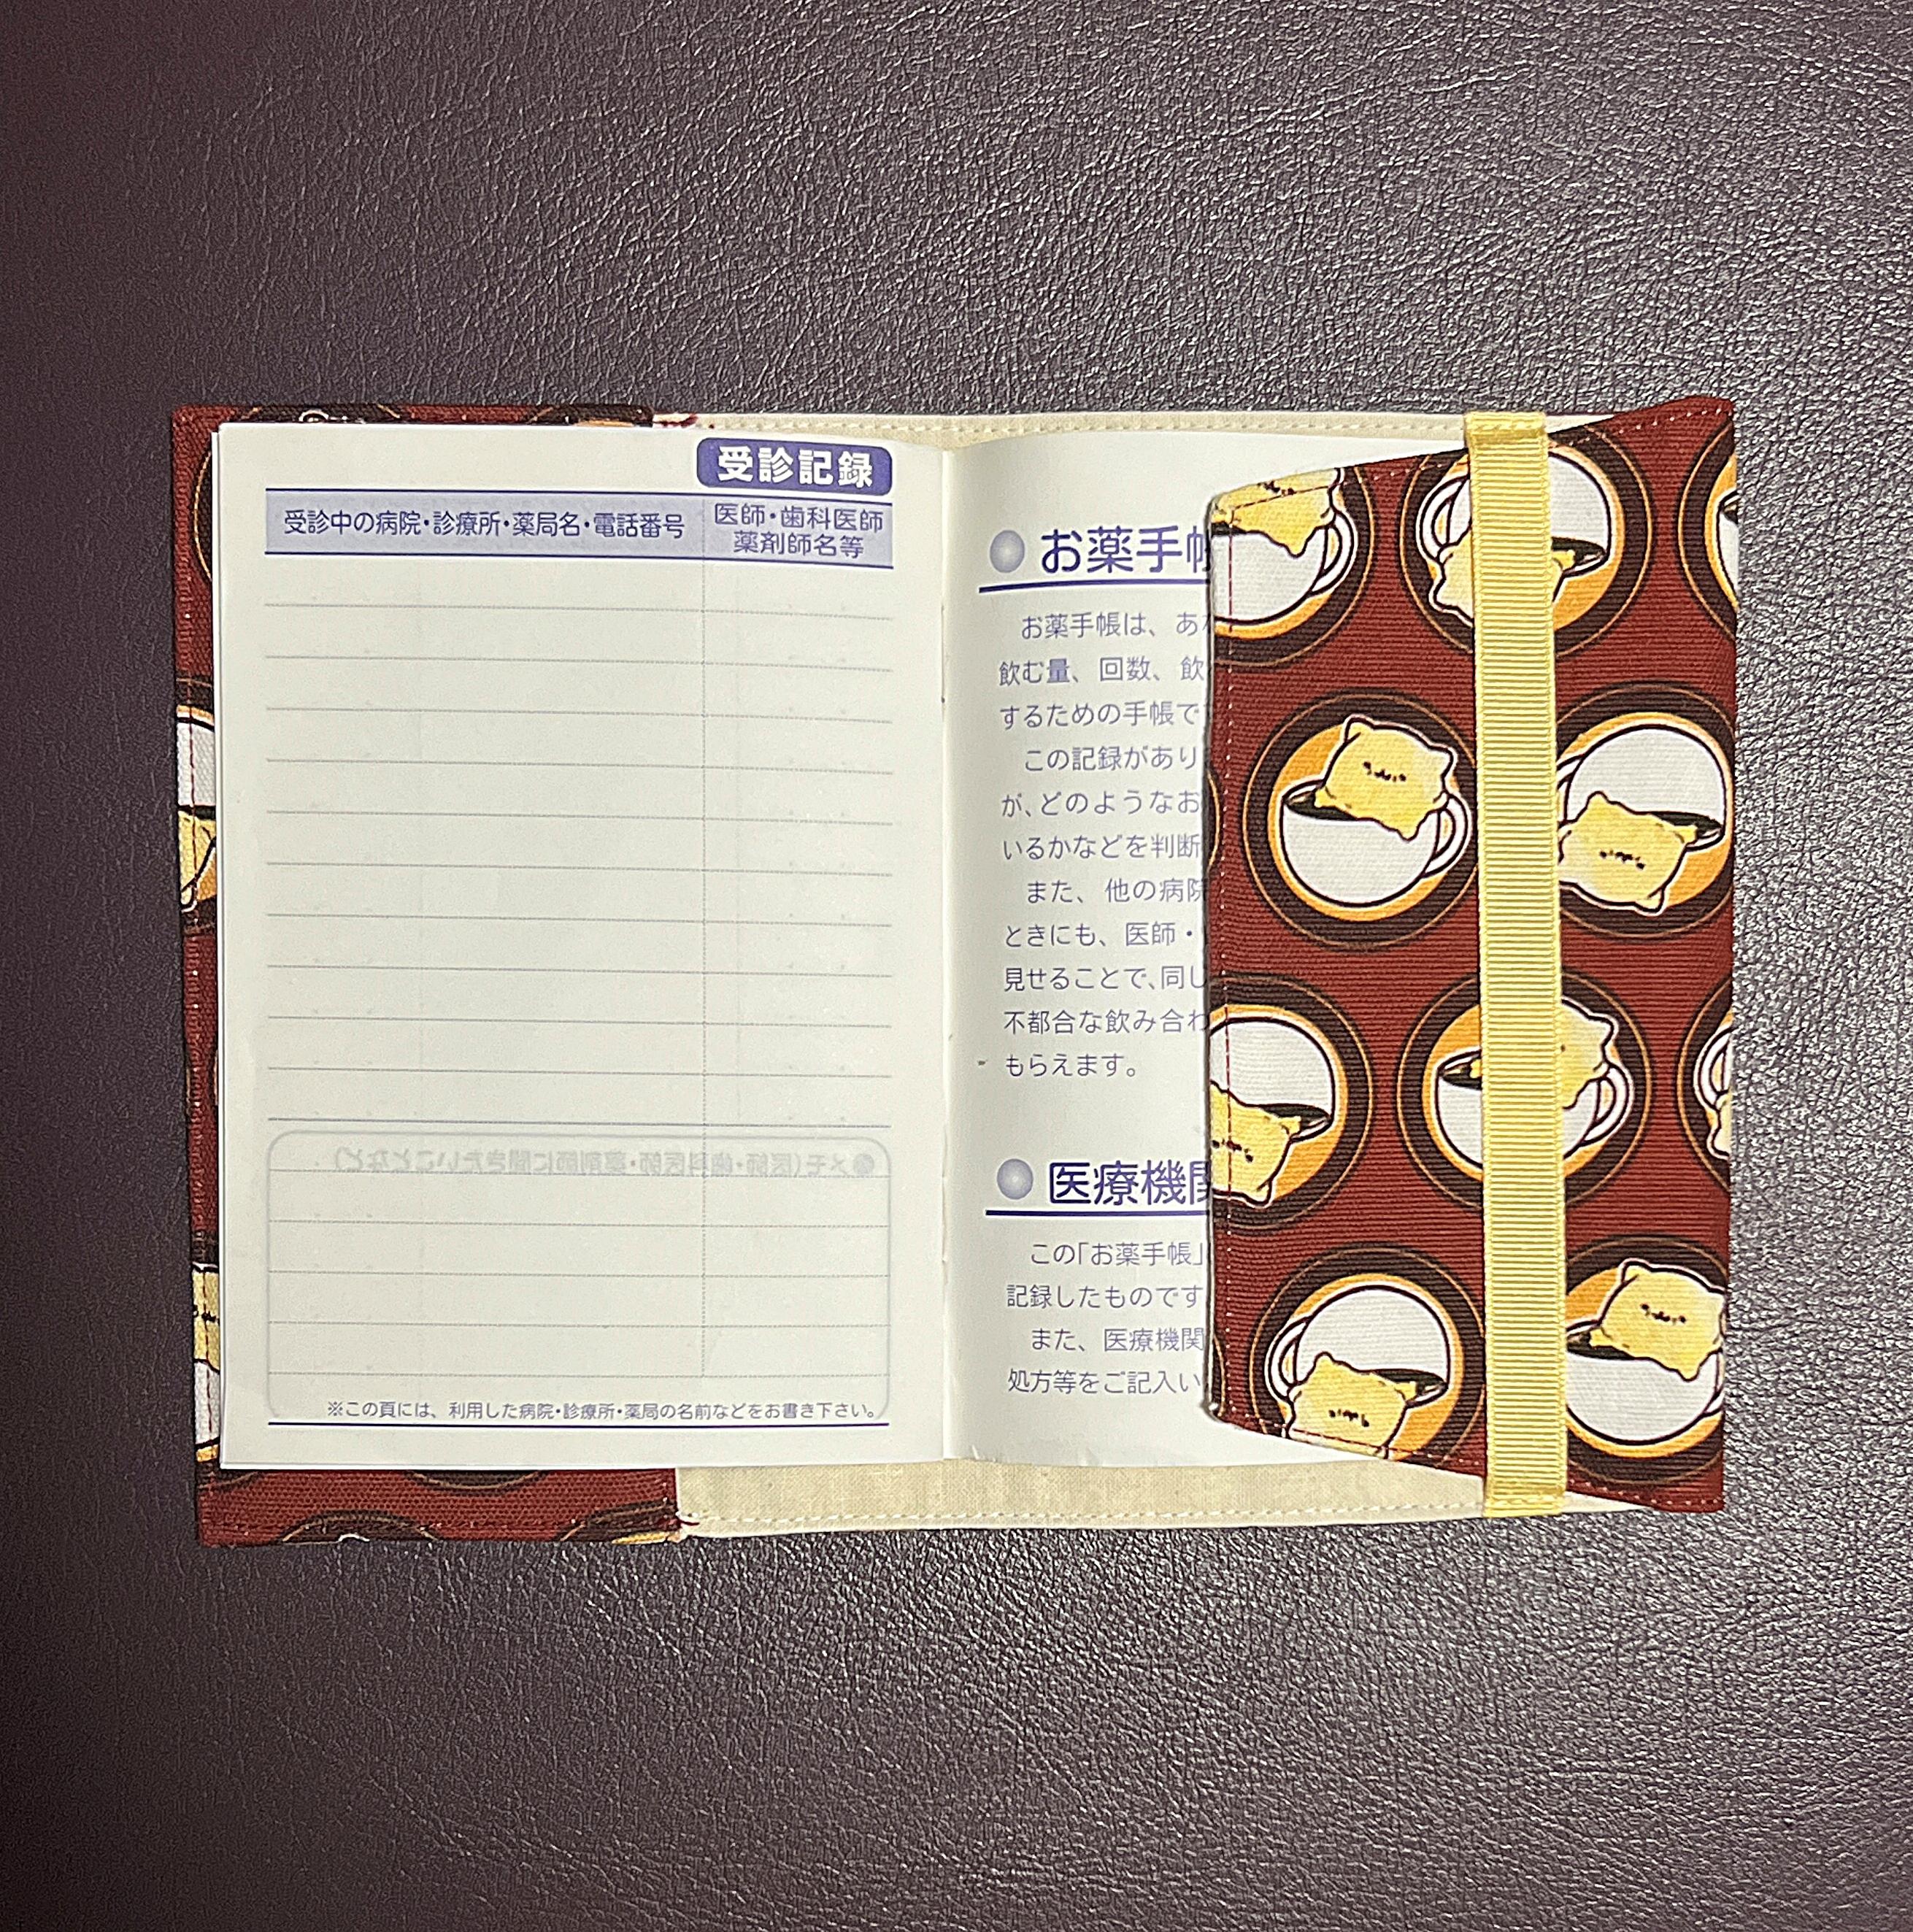 受診記録
受診中の病院・診療所・薬局名・電話番号
医師・歯科医師
薬剤師名等
※この頁には、利用した病院・診療所・薬局の名前などをお書き下さい。
お薬手
お薬手帳は、あ
飲む量、回数、飲
するための手帳で
この記録があり
が、どのようなお
いるかなどを判断
また、他の病院
ときにも、医師・
見せることで、同じ
不都合な飲み合わ
もらえます。
医療機関
この「お薬手帳」
記録したものです
また、医療機関
処方等をご記入い